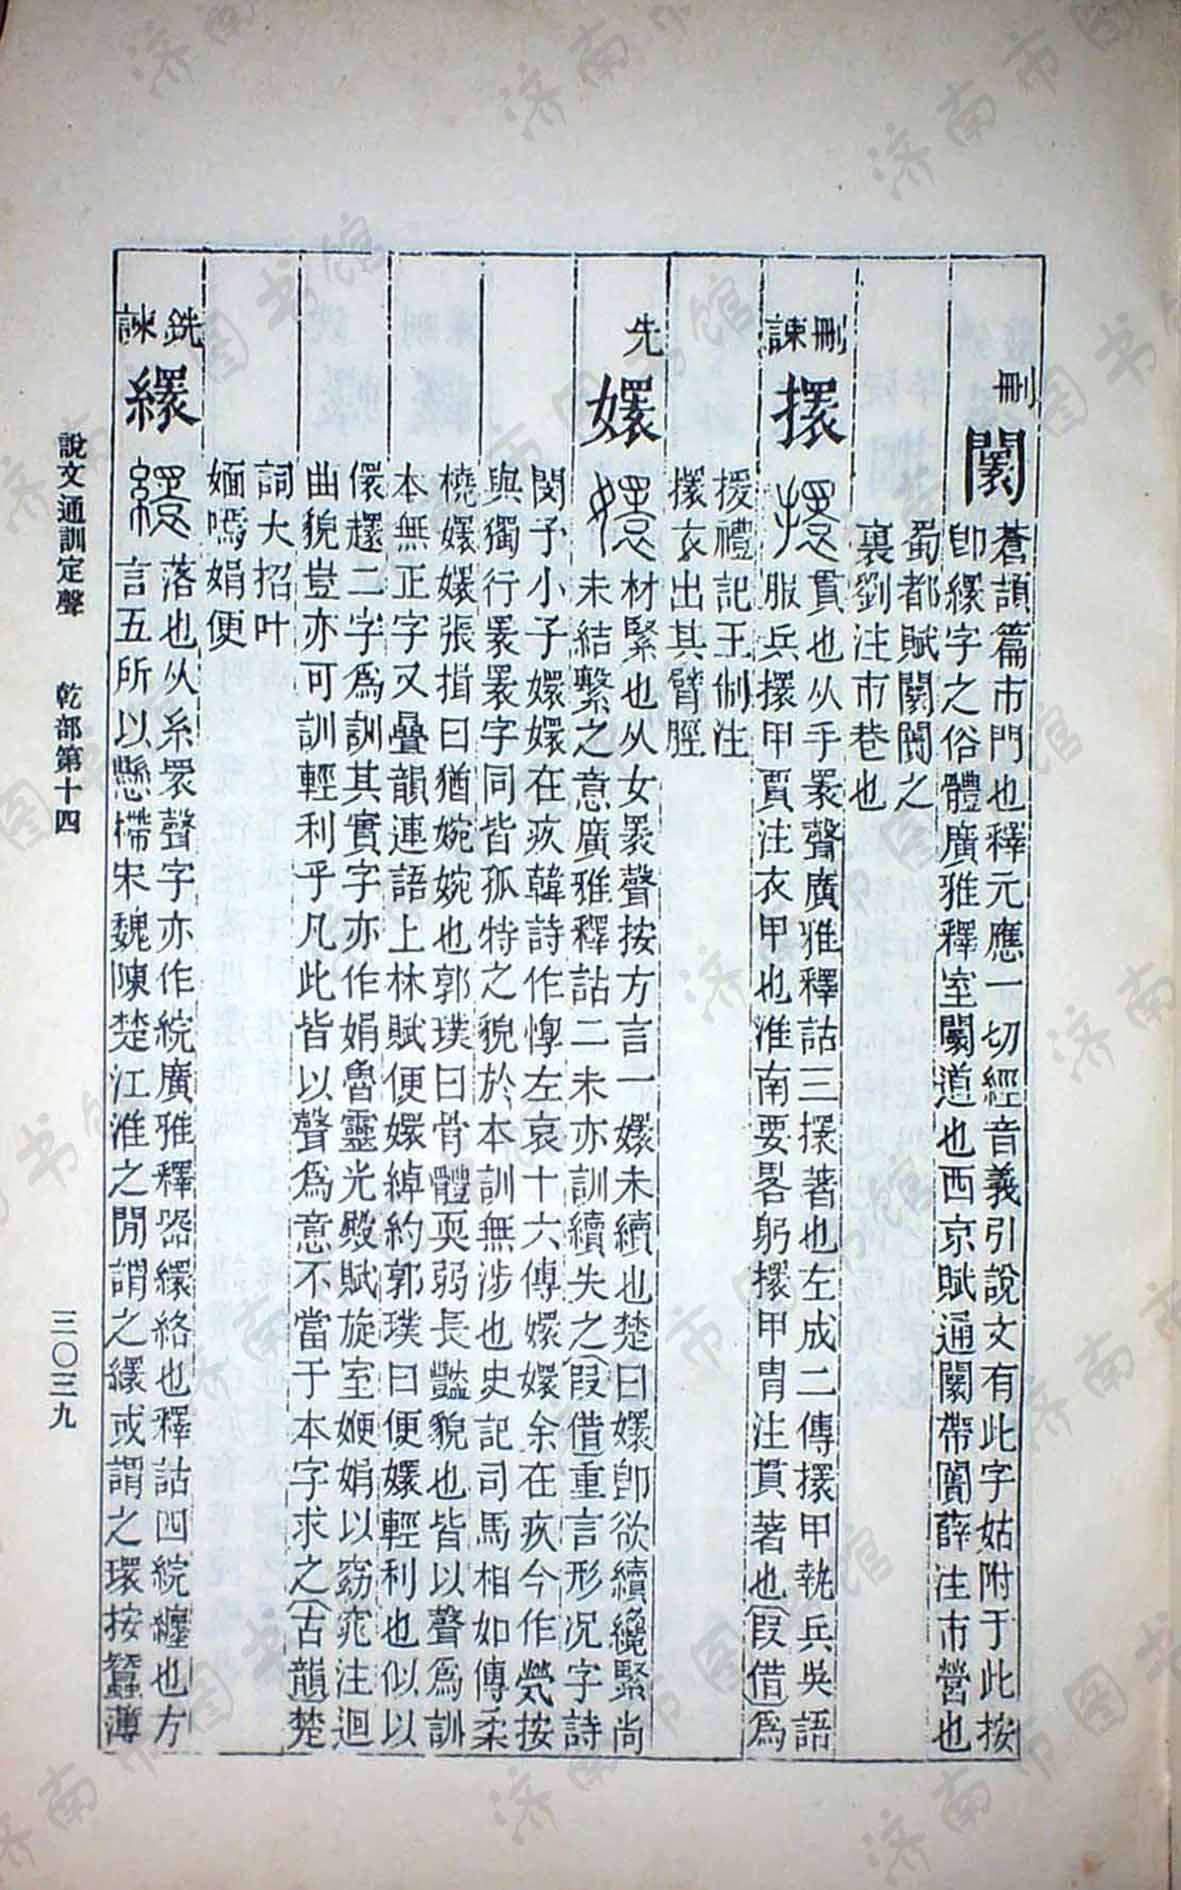 刪
闤
蒼頡篇市門也釋元應一切經音義引說文有此字姑附于此按
卽繯字之俗體廣雅釋室闤道也西京賦通闤帶闠薛注市營也
蜀都賦闤闠之
裏劉注市巷也
刪諫
擐
貫也从手瞏聲廣雅釋詁三擐著也左成二傳擐甲執兵吳語
服兵擐甲賈注衣甲也淮南要畧躬擐甲胄注貫著也（叚借）爲
援禮記王制注
擐衣出其臂脛
先
嬛
材緊也从女瞏聲按方言一嬛未續也楚曰嬛卽欲續纔緊尚
未結繫之意廣雅釋詁二未亦訓續失之（叚借）重言形況字詩
閔予小子嬛嬛在疚韓詩作惸左哀十六傳嬛嬛余在疚今作煢按
與獨行瞏瞏字同皆孤特之貌於本訓無涉也史記司馬相如傳柔
橈嬛嬛張揖曰猶婉婉也郭璞曰骨體耎弱長豔貌也皆以聲爲訓
本無正字又疊韻連語上林賦便嬛綽約郭璞曰便嬛輕利也似以
儇趯二字爲訓其實字亦作娟魯靈光殿賦旋室㛹娟以窈窕注迴
曲貌豈亦可訓輕利乎凡此皆以聲爲意不當于本字求之（古韻）楚
詞大招叶
媔嘕娟便
銑諫
繯
落也从糸瞏聲字亦作綄廣雅釋器繯絡也釋詁四綄纏也方
言五所以懸㯂宋魏陳楚江淮之閒謂之繯或謂之環按蠶薄
說文通訓定聲 乾部第十四 三〇三九
济南市图书馆